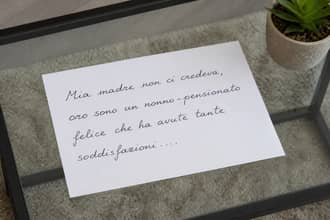 Mia madre non ci credeva,
oro sono un nonno-pensionato
felice che ha avute tante
soddisfazioni....